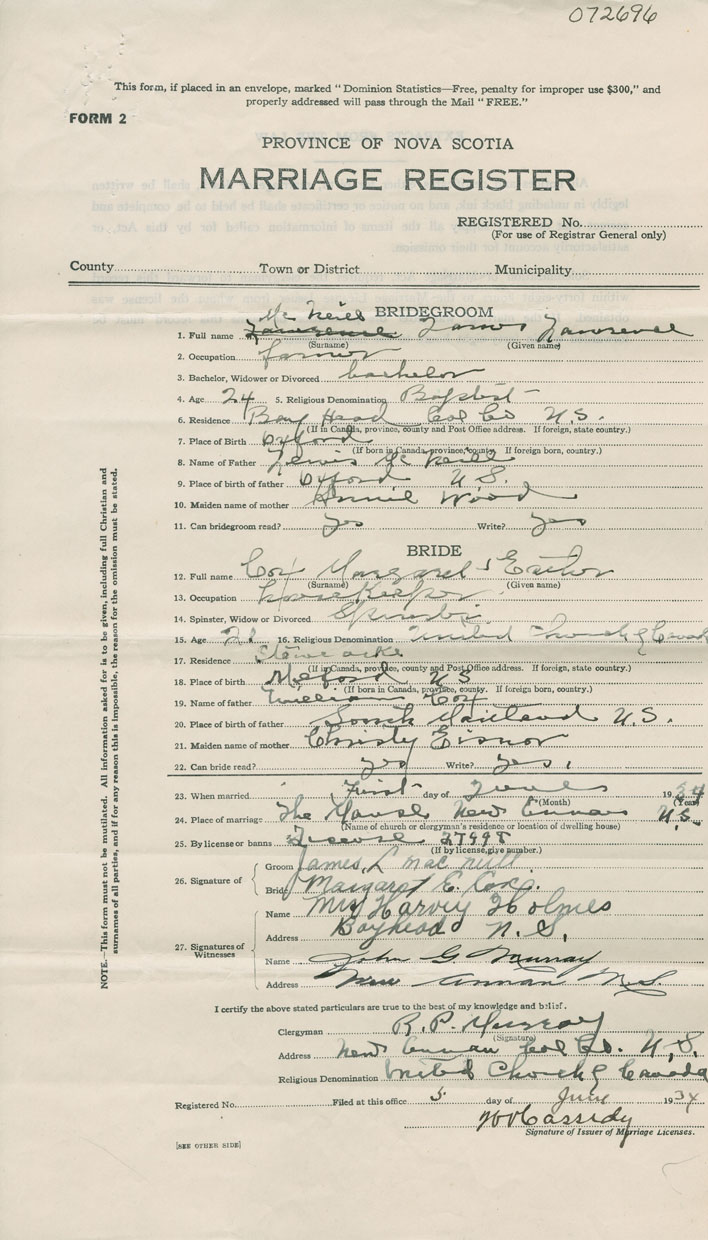 072696
This form, if placed in an envelope, marked "Dominion Statistics—Free, penalty for improper use $300," and
properly addressed will pass through the Mail "FREE."
FORM 2
PROVINCE OF NOVA SCOTIA
MARRIAGE REGISTER
REGISTERED No.
(For use of Registrar General only)
County Town or District Municipality
BRIDEGROOM
Mc Neill
1. Full name Lawrence James Lawrence
(Surname) (Given name)
2. Occupation farmer
3. Bachelor, Widower or Divorced bachelor
4. Age 24 5. Religious Denomination Baptist
6. Residence Bay Head Col Co N.S.
(If in Canada, province, county and Post Office address. If foreign, state country.)
7. Place of Birth Oxford
(If born in Canada, province, county. If foreign born, country.)
8. Name of Father Lewis Mc Neill
9. Place of birth of father Oxford N.S.
10. Maiden name of mother Annie Wood
11. Can bridegroom read? yes Write? yes
BRIDE
12. Full name Cox Margaret Esther
(Surname) (Given name)
13. Occupation housekeeper
14. Spinster, Widow or Divorced Spinster
15. Age 21 16. Religious Denomination United Church of Canada
17. Residence Stewiacke
(If in Canada, province, county and Post Office address. If foreign, state country.)
18. Place of birth Milford N S
(If born in Canada, province, county. If foreign born, country.)
19. Name of father William Cox
20. Place of birth of father South Maitland N.S.
21. Maiden name of mother Christy Eisnor
22. Can bride read? yes Write? yes.
23. When married First day of 1934
(Month) (Year)
24. Place of marriage The Manse New Annan N.S.
(Name of church or clergyman's residence or location of dwelling house)
25. By license or banns License 27998
(If by license, give number.)
26. Signature of Groom James L mac niell
Bride Margaret E. Cox.
27. Signatures of Witnesses Name Mrs Harvey Holmes
Address Bayhead N.S.
Name John G Murray
Address New Annan N.S.
I certify the above stated particulars are true to the best of my knowledge and belief.
Clergyman R.P. Murray
(Signature)
Address New Annan Col Co. N.S.
Religious Denomination United Church of Canada
Registered No. Filed at this office 5 day of July 1934
Cassidy
Signature of Issuer of Marriage Licenses.
[SEE OTHER SIDE]
NOTE.—This form must not be mutilated. All information asked for is to be given, including full Christian and
surnames of all parties, and if for any reason this is impossible, the reason for the omission must be stated.